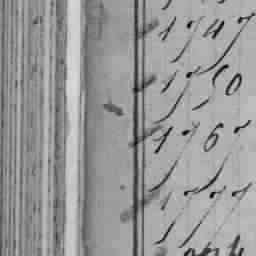 1747
1750
1767
1777